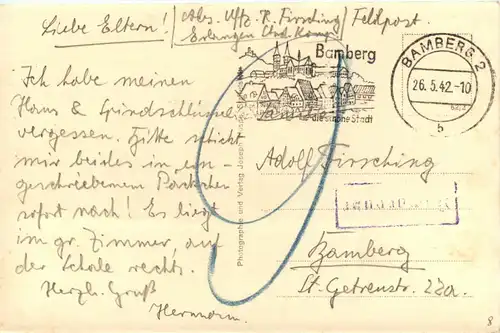 Liebe Eltern!
Abs. Uffz. H. Firsching / Feldpost.
Erlangen
Ich habe meinen
Haus & Spindschlüssel
vergessen. Bitte schickt
mir beides in ein-
geschriebenem Päckchen
sofort nach! Es liegt
im gr. Zimmer, auf
der rechts.
Herzl. Gruß
Hermann.
Photographie und Verlag Joseph
Bamberg
die schöne Stadt
BAMBERG 2
26.5.42.-10
b
Adolf Firsching
Bamberg
St. Getreustr. 22a.
8